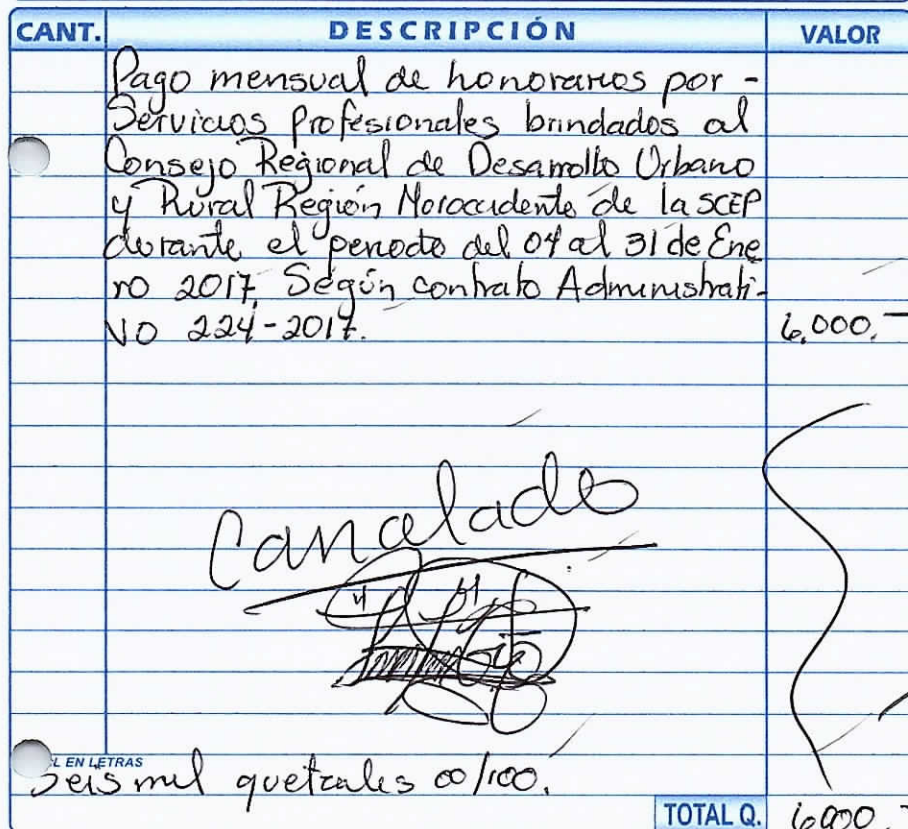 CANT. DESCRIPCIÓN VALOR
Pago mensual de honorarios por -
Servicios Profesionales brindados al
Consejo Regional de Desarrollo Urbano
y Rural Región Noroccidente de la SCEP
durante el periodo del 04 al 31 de Ene
ro 2017, Según contrato Administrati-
vo 224-2017. 6,000.-
Cancelado
L EN LETRAS
Seis mil quetzales 00/100.
TOTAL Q. 6,000.-